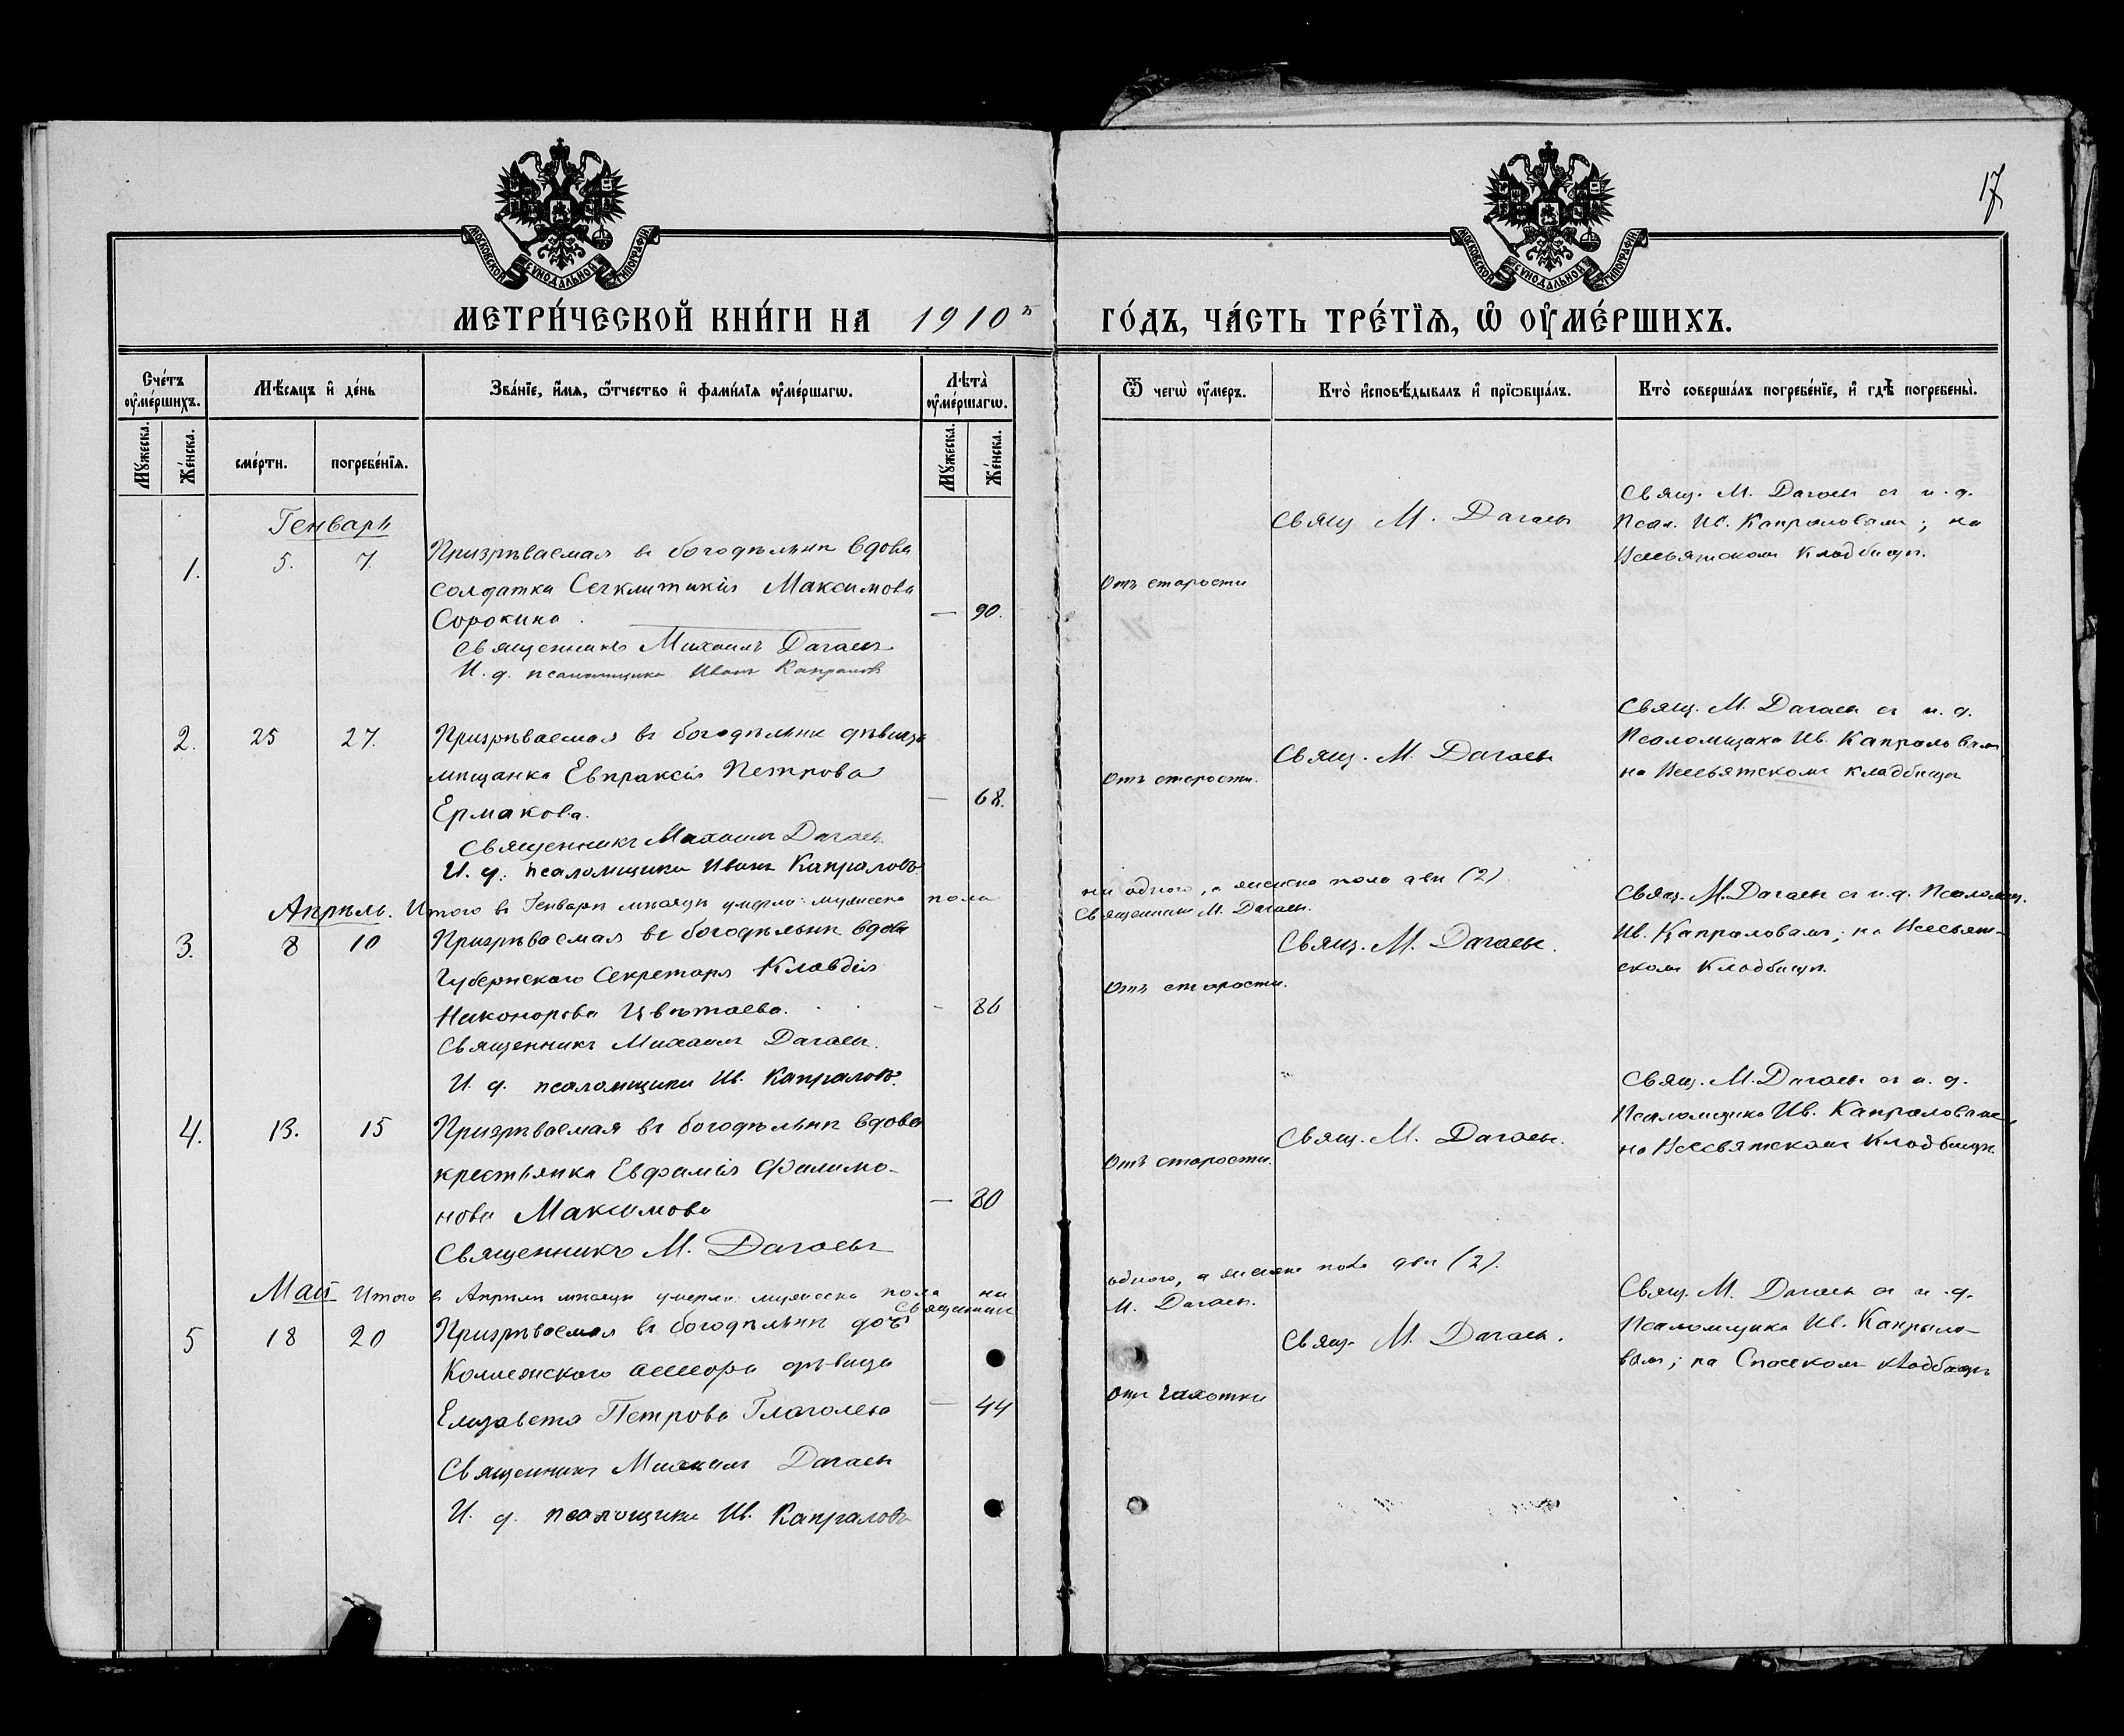 17
МОСКОВСКОЙ СѴНОДАЛЬНОЙ ТИПОГРАФІИ
МОСКОВСКОЙ СѴНОДАЛЬНОЙ ТИПОГРАФІИ
МЕТРИ́ЧЕСКОЙ КНИ́ГИ НА 1910 ГО́ДЪ, ЧА́СТЬ ТРЕ́ТЇѦ, Ѡ҆ ОУ҆МЕ́РШИХЪ.
Сче́тъ оу҆ме́ршихъ.
Мѣ́сѧцъ и҆ де́нь
Зва́нїе, и҆́мѧ, ѻ҆́тчество и҆ фами́лїѧ оу҆ме́ршагѡ.
Лѣ́та оу҆ме́ршагѡ.
Ѿ чегѡ̀ оу҆́меръ.
Кто̀ и҆сповѣ́дывалъ и҆ прїѡбща́лъ.
Кто̀ соверша́лъ погребе́нїе, и҆ гдѣ̀ погребены̀.
Мꙋ́жеска.
Же́нска.
сме́рти.
погребе́нїѧ.
Мꙋ́жеска.
Же́нска.
Генварь
1. 5. 7. Призрѣваемая въ богодѣльнѣ вдова
солдатка Сегклитикія Максимова
Сорокина. — 90.
Священникъ Михаилъ Дагаевъ
И. д. псаломщика Иванъ Капраловъ
Отъ старости
Свящ. М. Дагаевъ
Свящ. М. Дагаевъ съ и. д.
Псал. Ив. Капраловымъ; на
Всесвятскомъ кладбищѣ.
2. 25 27. Призрѣваемая въ богодѣльнѣ дѣвица
мѣщанка Евпраксія Петрова
Ермакова. — 68.
Священникъ Михаилъ Дагаевъ
И. д. псаломщика Иванъ Капраловъ
Отъ старости.
Свящ. М. Дагаевъ
Свящ. М. Дагаевъ съ и. д.
Псаломщика Ив. Капраловымъ
на Всесвятскомъ кладбищѣ
Итого въ Генварѣ мѣсяцѣ умерло: мужеска пола ни одного, а женска пола двѣ (2).
Священникъ М. Дагаевъ.
Апрѣль.
3. 8 10 Призрѣваемая въ богодѣльнѣ вдова
Губернскаго Секретаря Клавдія
Никонорова Цвѣтаева. — 86
Священникъ Михаилъ Дагаевъ.
И. д. псаломщика Ив. Капраловъ.
Отъ старости.
Свящ. М. Дагаевъ.
Свящ. М. Дагаевъ съ и. д. Псаломщ.
Ив. Капраловымъ; на Всесвят-
скомъ кладбищѣ.
4. 13. 15 Призрѣваемая въ богодѣльнѣ вдова
крестьянка Евфимія Филимо-
нова Максимова — 80
Священникъ М. Дагаевъ
Отъ старости.
Свящ. М. Дагаевъ.
Свящ. М. Дагаевъ съ и. д.
Псаломщика Ив. Капраловымъ,
на Всесвятскомъ кладбищѣ
Итого въ Апрѣлѣ мѣсяцѣ умерло: мужеска пола ни одного, а женска пола двѣ (2).
Священникъ М. Дагаевъ.
Май
5 18 20 Призрѣваемая въ богодѣльнѣ дочь
Коллежскаго ассесора дѣвица
Елизавета Петрова Глаголева — 44
Священникъ Михаилъ Дагаевъ
И. д. псаломщика Ив. Капраловъ
Отъ чахотки
Свящ. М. Дагаевъ.
Свящ. М. Дагаевъ съ и. д.
Псаломщика Ив. Капрало-
вымъ; на Спасскомъ кладбищѣ